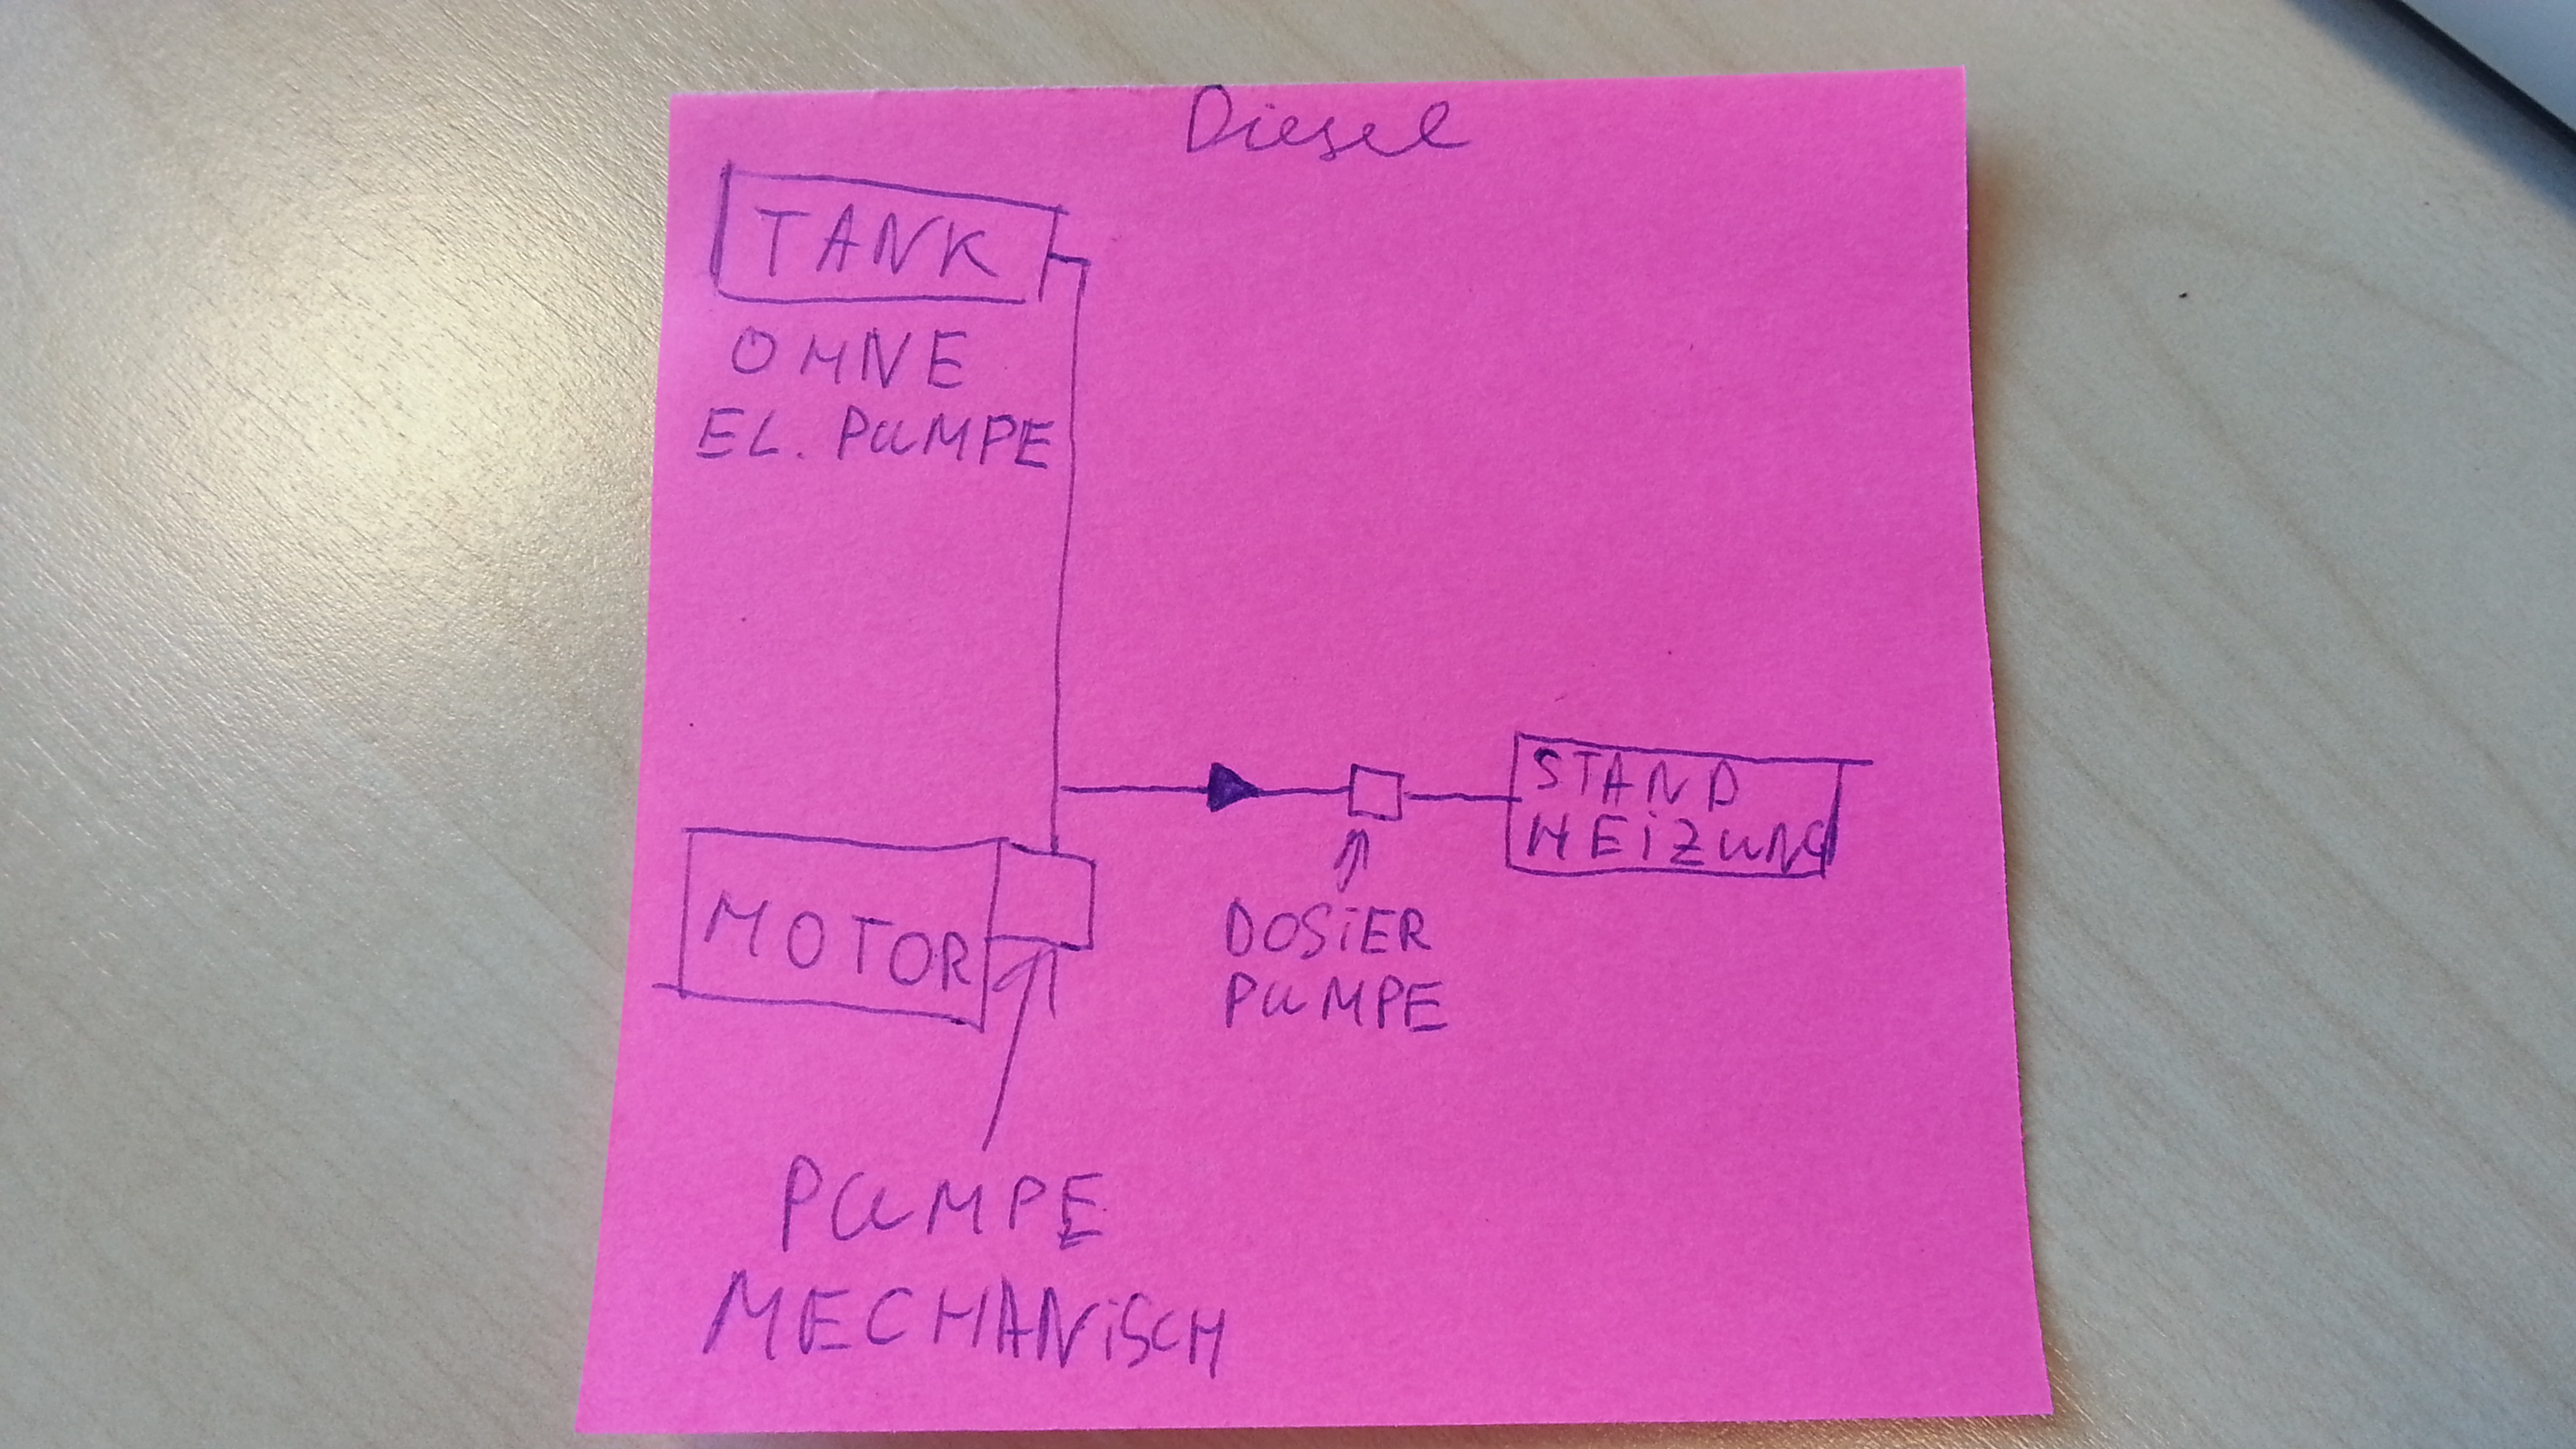 Diesel
TANK
OHNE
EL. PUMPE
STAND
HEiZUNG
MOTOR
DOSiER
PUMPE
PUMPE
MECHANiSCH